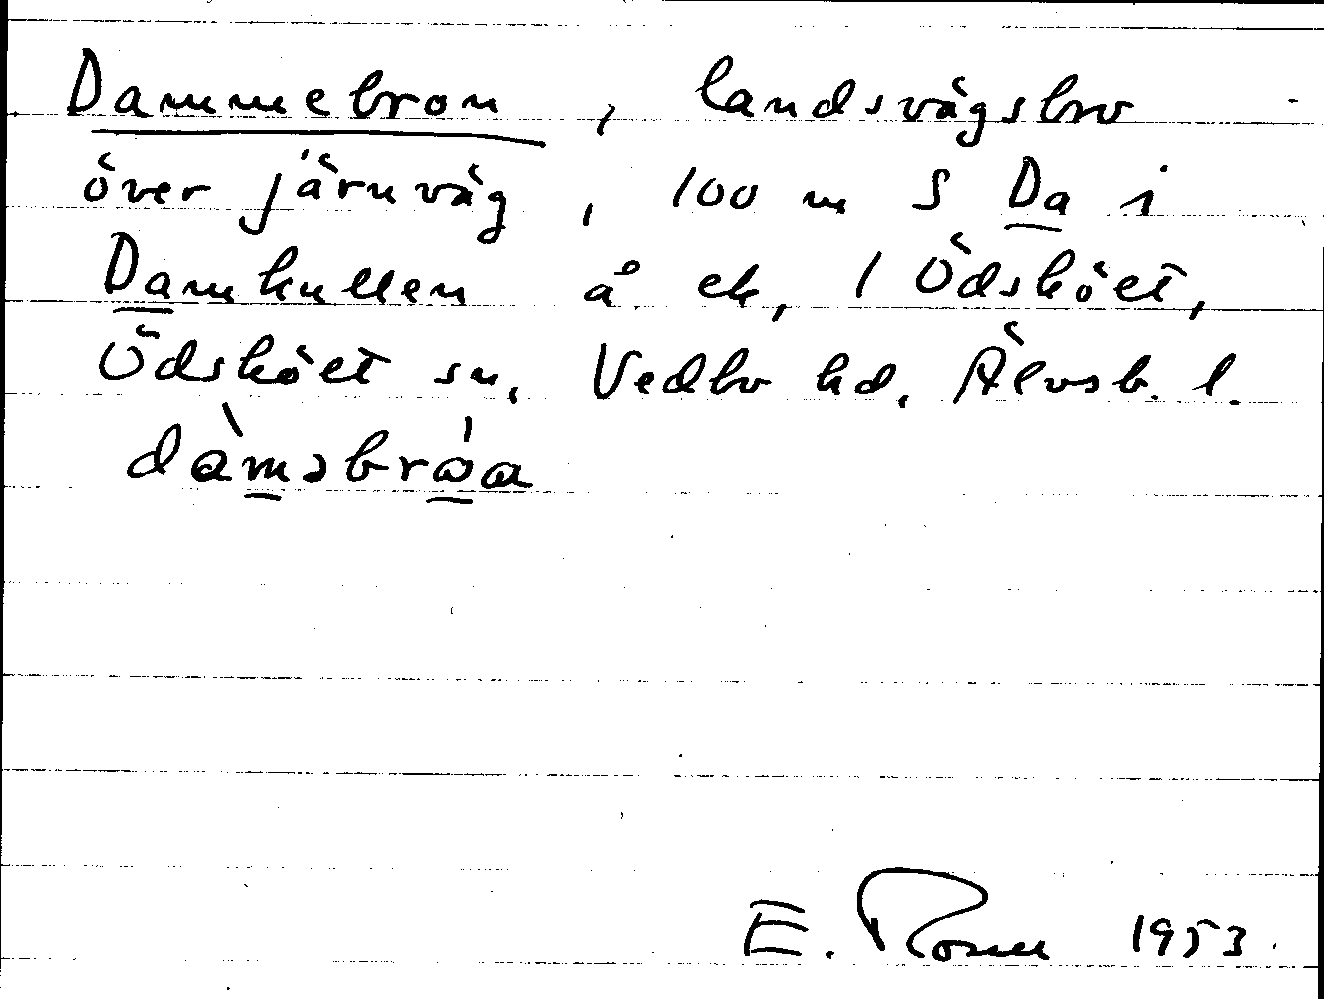 Dammebron, landsvägsbro
över järnväg, 100 m S Da i
Damkullen å ek, 1 Ödsköet,
Ödsköet sn, Vedbo hd, Älvsb. l.
dàməbrɷ́a
E. Rosen 1953.